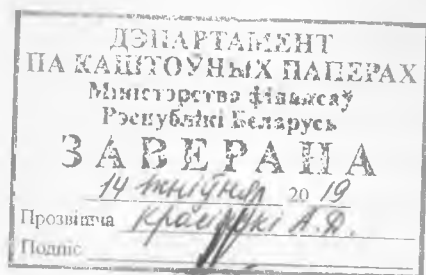 ДЭПАРТАМЕНТ
ПА КАШТОУНЫХ ПАПЕРАХ
Міністэрства фінансаў
Рэспублікі Беларусь
ЗАВЕРАНА
14 20 19
Прозвішча А.
Подпіс